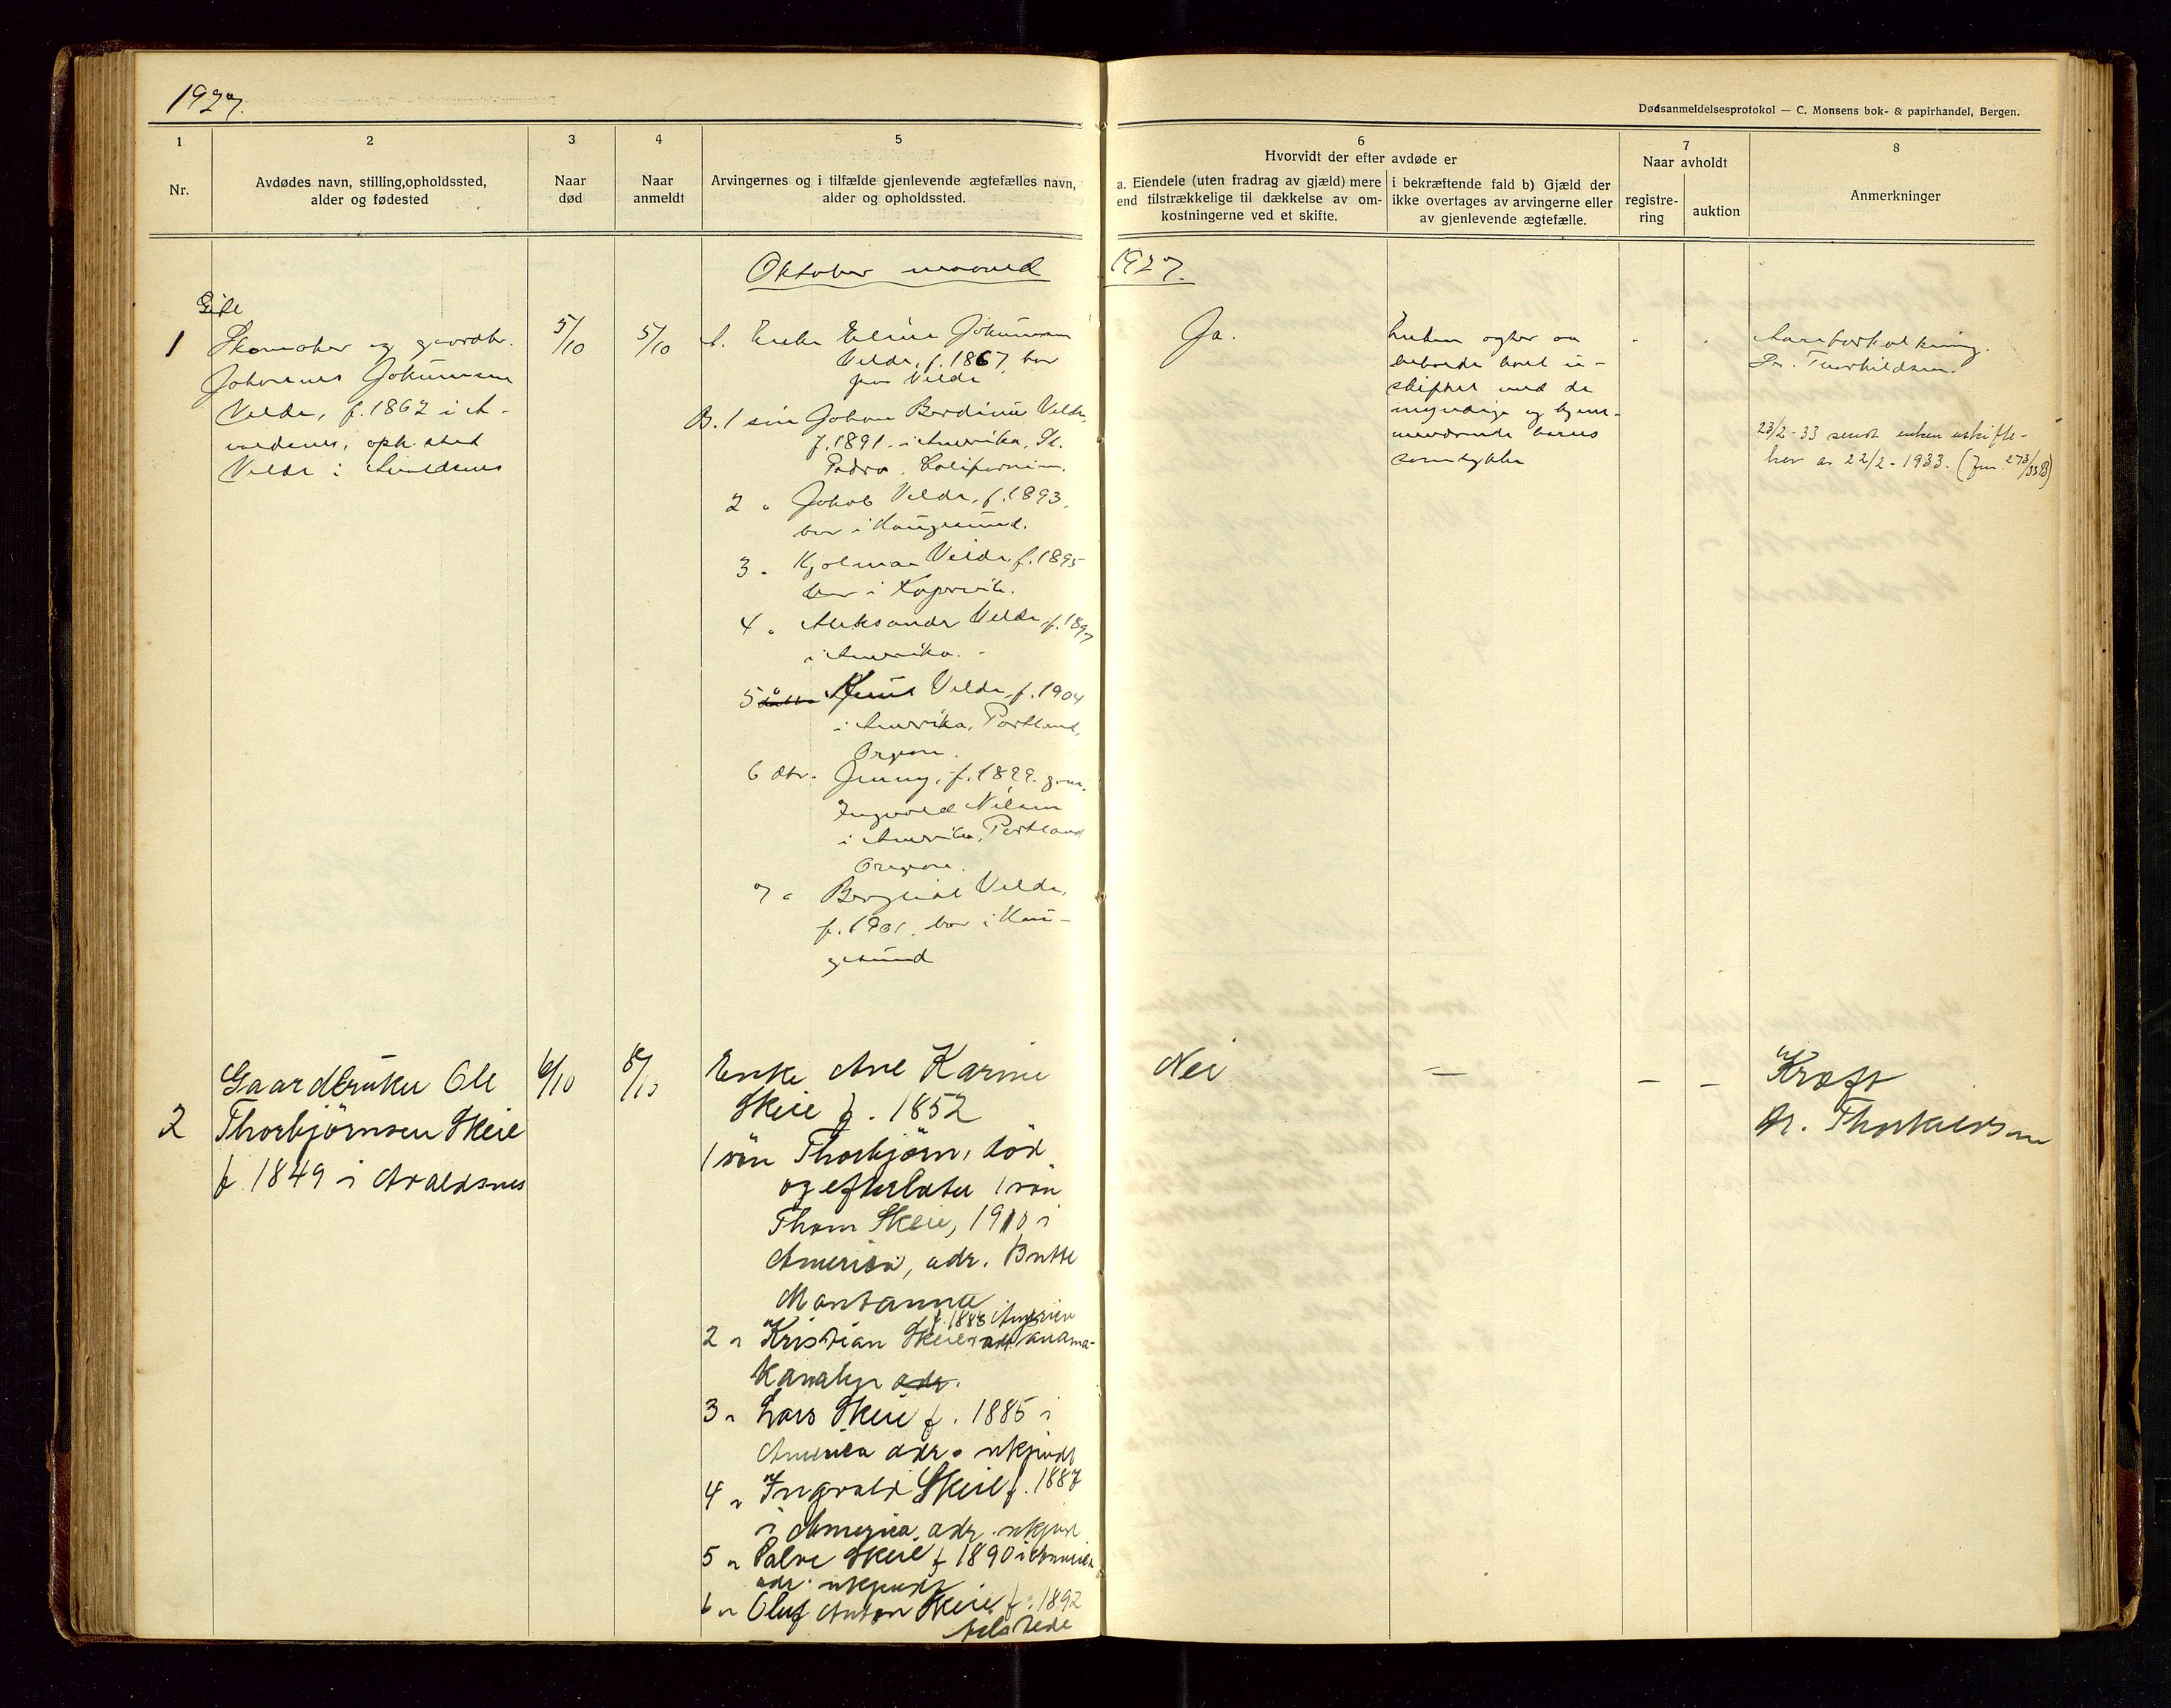 1927.
Dødsanmeldelsesprotokol — C. Monsens bok- & papirhandel, Bergen.
1
Nr.
2
Avdødes navn, stilling,opholdssted,
alder og fødested
3
Naar
død
4
Naar
anmeldt
5
Arvingernes og i tilfælde gjenlevende ægtefælles navn,
alder og opholdssted.
6
Hvorvidt der efter avdøde er
a. Eiendele (uten fradrag av gjæld) mere
end tilstrækkelige til dækkelse av om-
kostningerne ved et skifte.
i bekræftende fald b) Gjæld der
ikke overtages av arvingerne eller
av gjenlevende ægtefælle.
7
Naar avholdt
registre-
ring
auktion
8
Anmerkninger
Oktober maaned 1927.
1
Skomaker og gaardbr.
Johannes Jokumsen
Velde, f. 1867 i A-
valdsnes, oph. sted
Velde i Avaldsnes
5/10
5/10
A. Enke Eline Jokumsen
Velde, f. 1867, bor
paa Velde
B. 1 søn Johan Berdinus Velde,
f. 1891 - i Amerika, St.
Pedro, California.
2 " Jakob Velde, f. 1893,
bor i Haugesund.
3 " Hjalmar Velde, f. 1895
bor i Kopervik.
4 " Aleksander Velde, f. 1897
i Amerika. -
5 Knut Velde, f. 1904
i Amerika, Portland,
Oregon.
6 dtr. Jenny, f. 1899. g.m.
Ingvald Nilsen
i Amerika, Portland
Oregon.
7 " Bergliot Velde,
f. 1901, bor i Hau-
gesund
Ja.
Enken agter aa
hensidde i uskiftet
bo med de
myndige og hjem-
meværende barns
samtykke
Aareforkalkning.
Dr. Thorkildsen.
23/2-33 sendt enken uskifte-
bev. av 22/2-1933. (Jnr. 273/33B)
2
Gaardbruker Ole
Thorbjörnsen Skeie
f 1849 i Avaldsnes
6/10
8/10
Enke Ane Karine
Skeie f. 1852
1 sön Thorbjörn, död
og efterlater 1 sön
Thom Skeie, 1910 i
America, adr. Butte
Montanna
f. 1883 America
2 " Kristian Skeie adr Panama-
Kanalen adr.
3 " Lars Skeie f. 1885 i
America adr. ukjendt
4 " Ingvald Skeie f. 1887
i America adr. ukjent
5 " Palve Skeie f 1890 i America
adr. ukjendt
6 " Oluf Anton Skeie f. 1892
Nei
—
—
—
Kræft
Dr. Thorkildsen